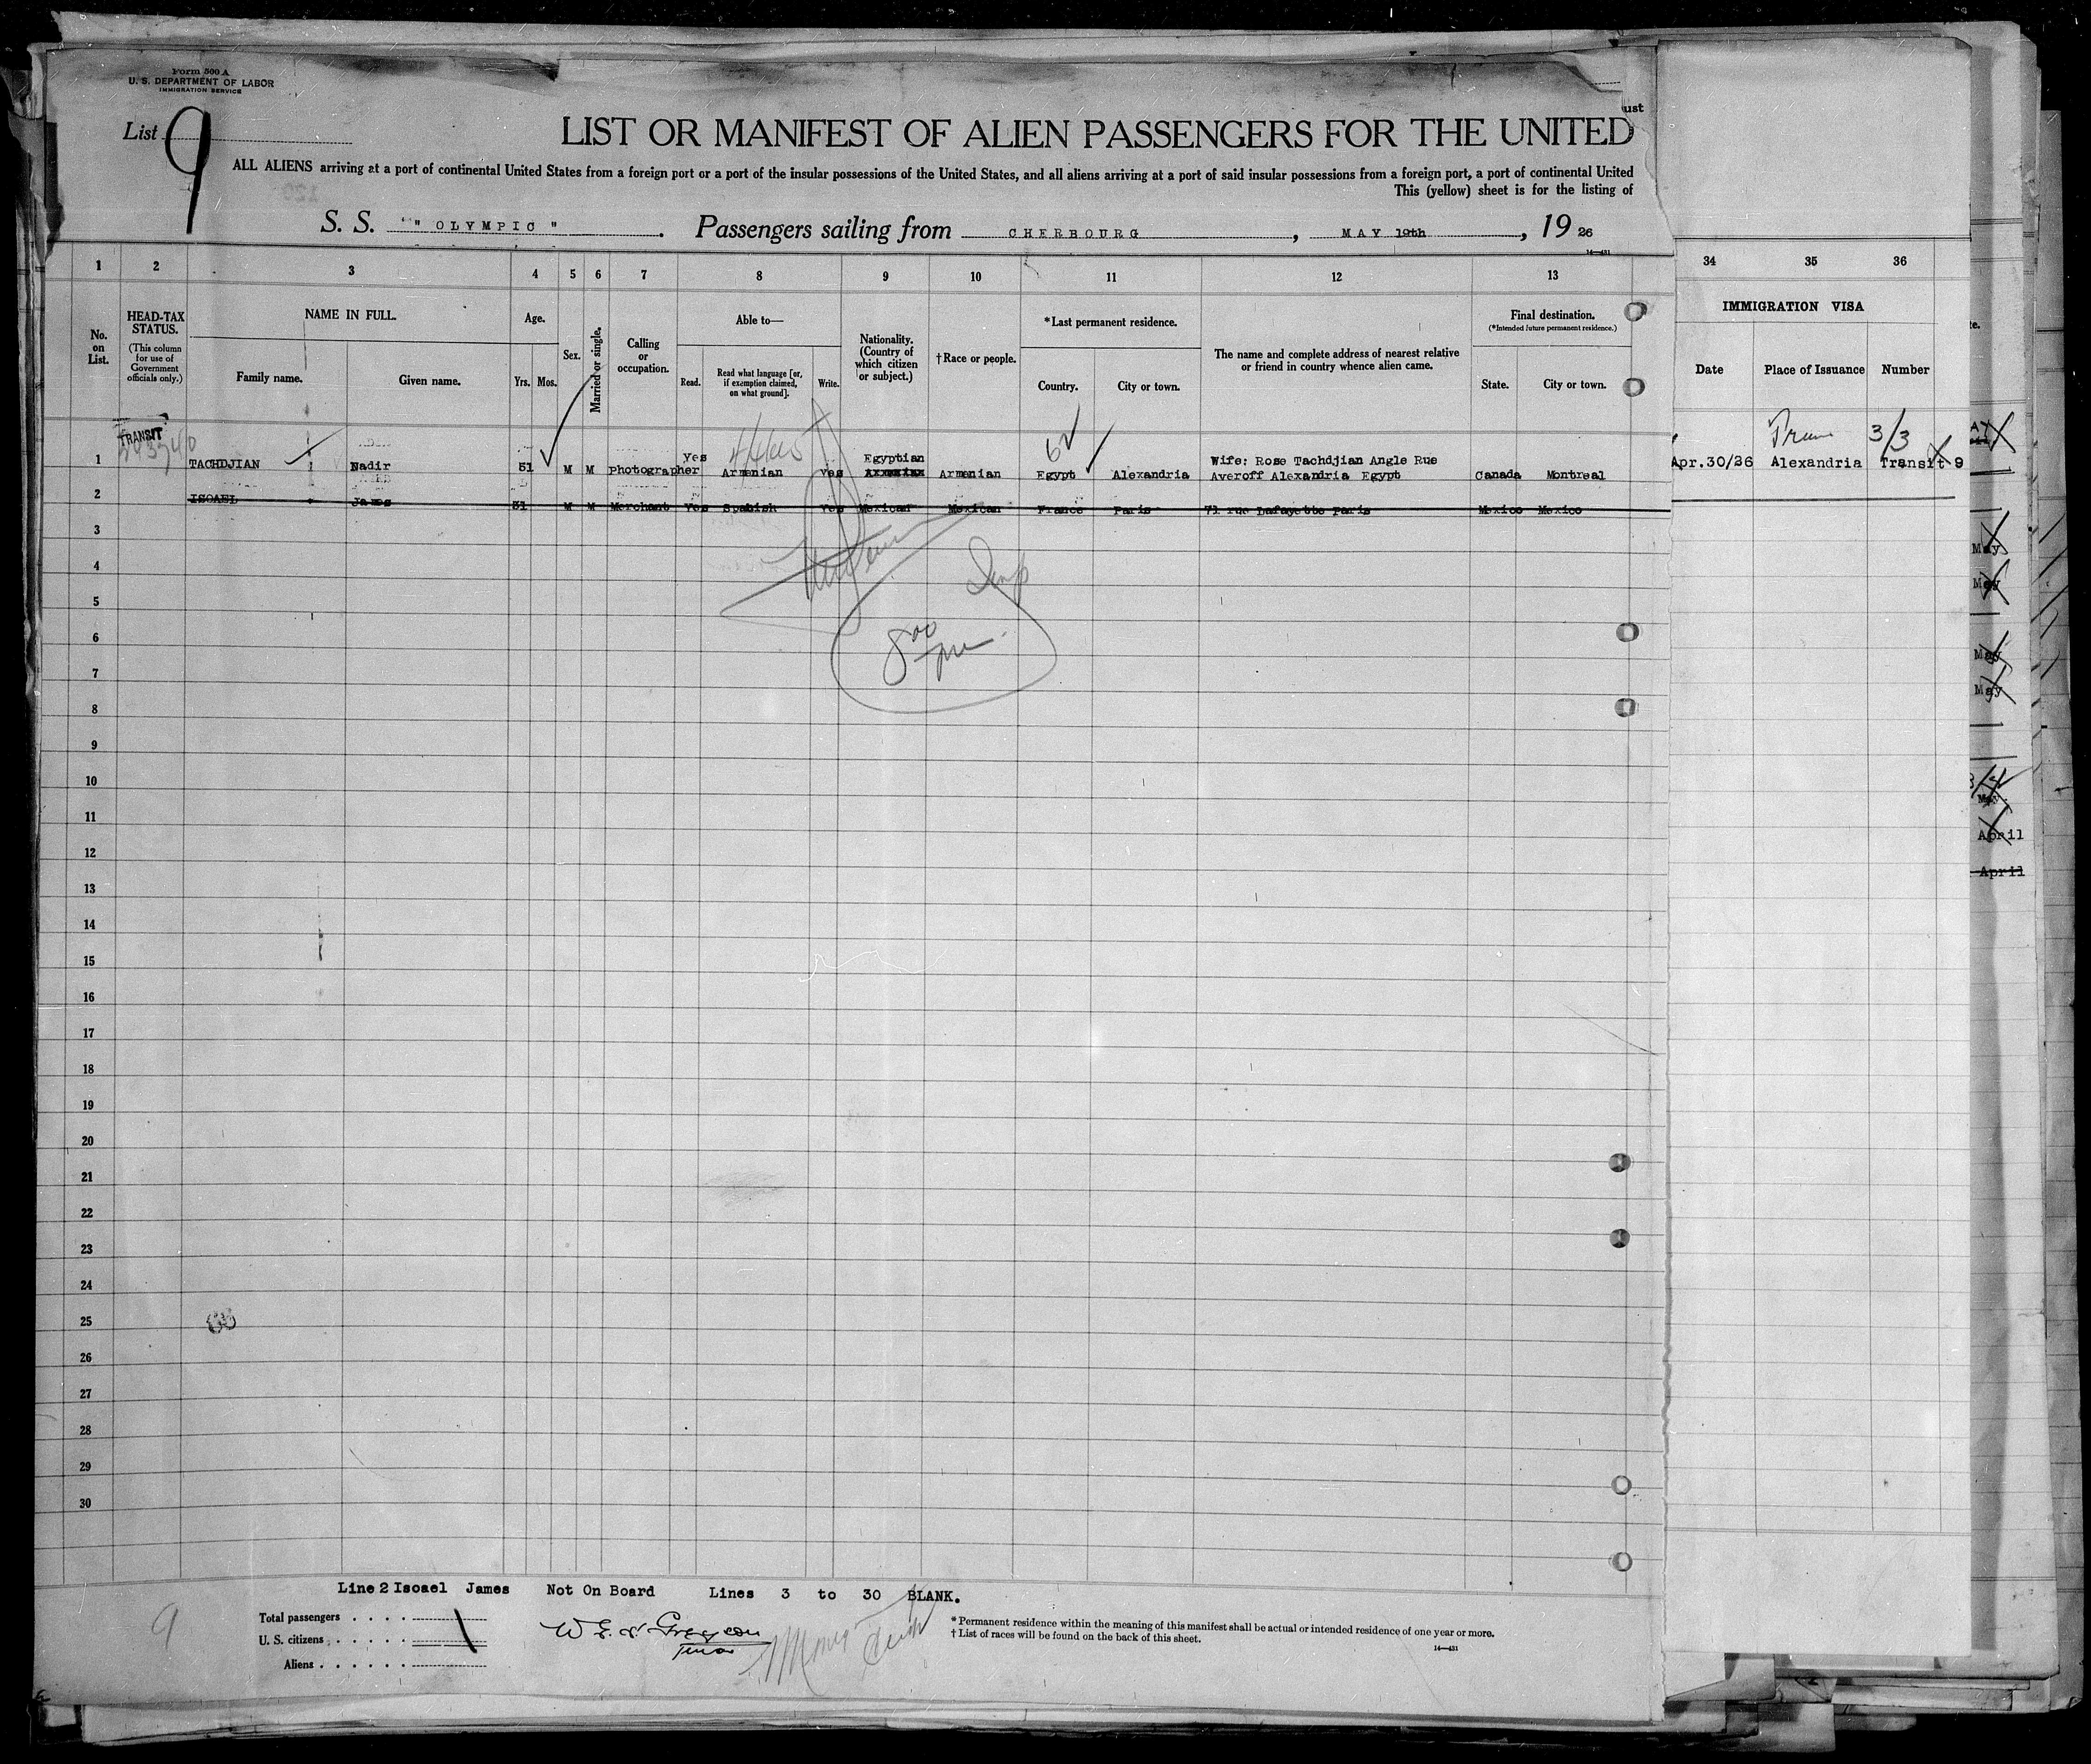 Form 500 A
U. S. DEPARTMENT OF LABOR
IMMIGRATION SERVICE
List 9
ust
LIST OR MANIFEST OF ALIEN PASSENGERS FOR THE UNITED
ALL ALIENS arriving at a port of continental United States from a foreign port or a port of the insular possessions of the United States, and all aliens arriving at a port of said insular possessions from a foreign port, a port of continental United
This (yellow) sheet is for the listing of
S. S. " OLYMPIC " . Passengers sailing from CHERBOURG , MAY 19th , 19 26
14—431
1 2 3 4 5 6 7 8 9 10 11 12 13 34 35 36
No. on List.
HEAD-TAX STATUS.
(This column for use of Government officials only.)
NAME IN FULL.
Family name. Given name.
Age.
Yrs. Mos.
Sex.
Married or single.
Calling or occupation.
Able to—
Read. Read what language [or, if exemption claimed, on what ground]. Write.
Nationality. (Country of which citizen or subject.)
†Race or people.
*Last permanent residence.
Country. City or town.
The name and complete address of nearest relative or friend in country whence alien came.
Final destination.
(*Intended future permanent residence.)
State. City or town.
IMMIGRATION VISA
Date Place of Issuance Number
TRANSIT
3/3
1 TACHDJIAN Nadir 51 M M Photographer Yes Armenian Yes Egyptian Armenian Egypt Alexandria Wife: Rose Tachdjian Angle Rue Averoff Alexandria Egypt Canada Montreal Apr.30/26 Alexandria Transit 9
2 ISOAEL James 31 M M Merchant Yes Spanish Yes Mexican Mexican France Paris 71 rue Lafayette Paris Mexico Mexico
3
4
5
6
7
8
9
10
11
12
13
14
15
16
17
18
19
20
21
22
23
24
25
26
27
28
29
30
8 00
May
May
May
May
May
April
April
Line 2 Isoael James Not On Board Lines 3 to 30 BLANK.
9
Total passengers . . . .
U. S. citizens . . . . .
Aliens . . . . . .
* Permanent residence within the meaning of this manifest shall be actual or intended residence of one year or more.
† List of races will be found on the back of this sheet.
14—431